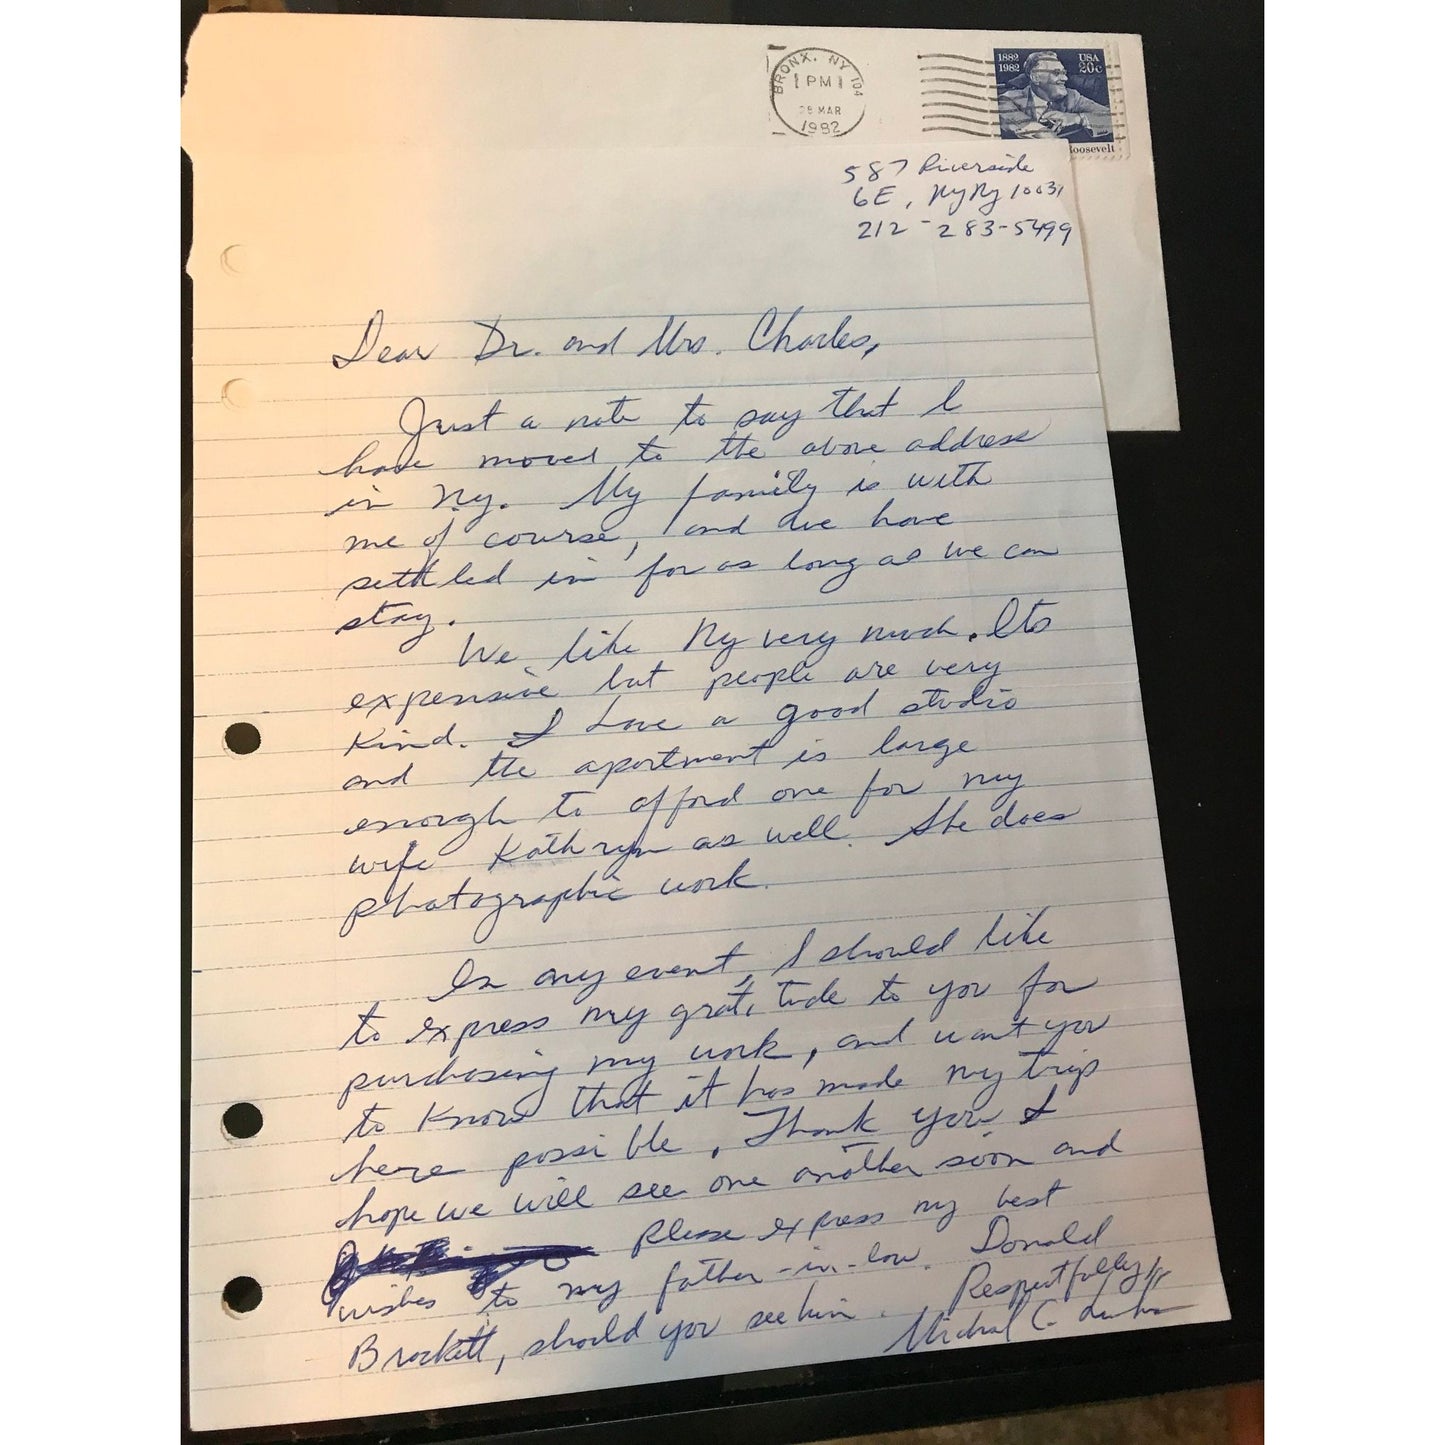 BRONX, NY 104
PM
28 MAR
1982
1882
1982
USA
20c
Roosevelt
587 Riverside
6E, Ny Ny 10031
212-283-5499
Dear Dr. and Mrs. Charles,
Just a note to say that I
have moved to the above address
in Ny. My family is with
me of course, and we have
settled in for as long as we can
stay.
We like Ny very much. Its
expensive but people are very
kind. I have a good studio
and the apartment is large
enough to afford one for my
wife Kathryn as well. She does
photographic work.
In any event, I should like
to express my gratitude to you for
purchasing my work, and want you
to know that it has made my trip
here possible. Thank you. I
hope we will see one another soon and
Please express my best
wishes to my father-in-law. Donald
Brockett, should you see him.
Respectfully yr
Michael C.